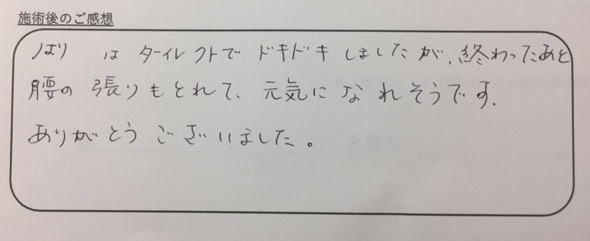 施術後のご感想
はり は ダイレクトで ドキドキ しましたが、終わったあと
腰の 張りもとれて、元気に なれそうです.
ありがとう ございました。